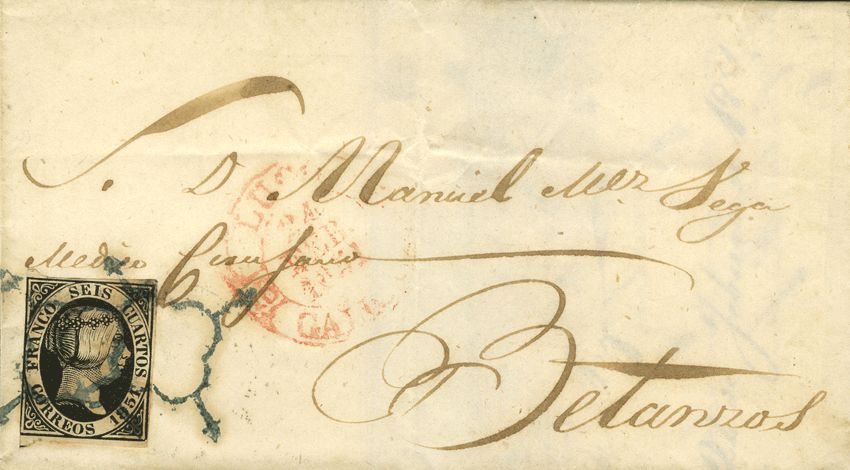 S. D. Manuel Mez Vega
Medico Cirujano
Betanzos
FRANCO SEIS CUARTOS
CORREOS 1851
LUGO
24
FEB
1851
GALICIA